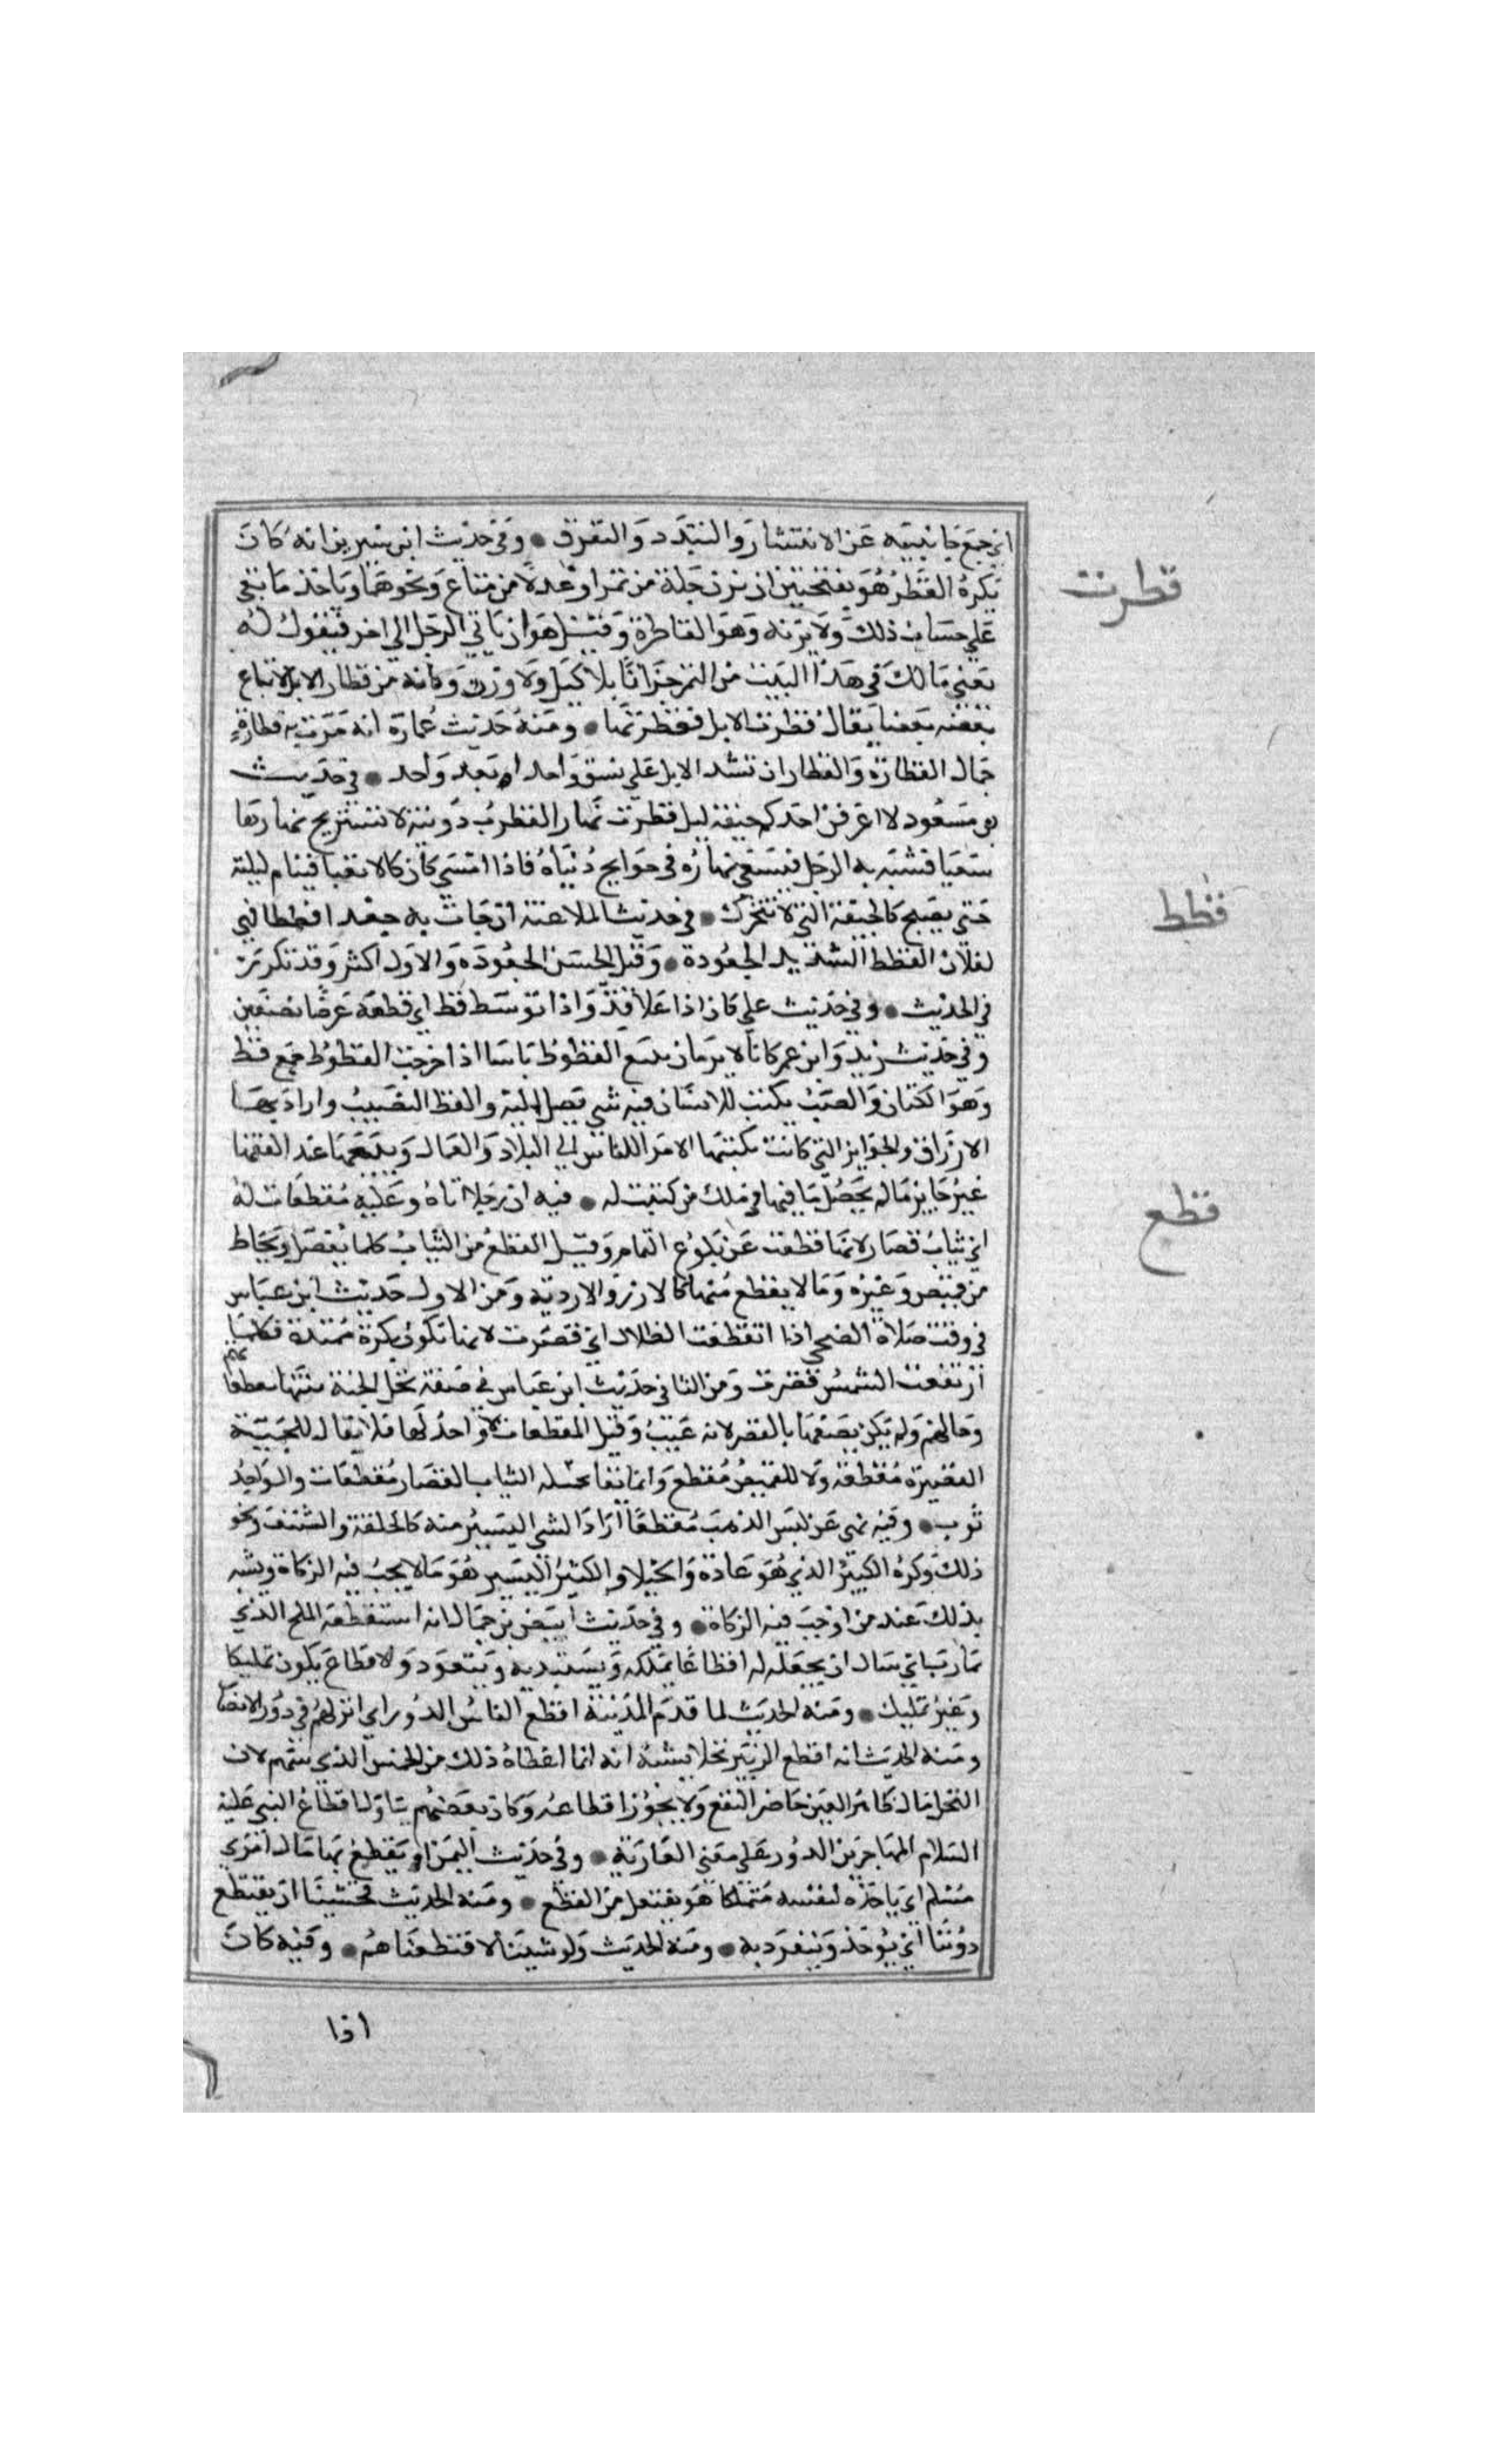 اي جمع جانبيه عن الانتشار والتبدد والتفرق ● وفي حديث ابن سيرين انه كان
يكره القطر هو بفتحتين ان يزن جلة من تمر او عدلا من متاع ونحوهما وياخذ ما بقي
علي حساب ذلك ولا يزنه وهو المقاطرة وقيل هو ان ياتي الرجل الي اخر فيقول له
بعني مالك في هذا البيت من التمر جزافا بلا كيل ولا وزن وكانه من قطار الابل لاتباع
بعضه بعضا يقال قطرت الابل فقطرتها ● ومنه حديث عمارة انه مرت به قطارة
جمال القطارة والقطار ان تشد الابل علي نسق واحدا بعد واحد ● في حديث
بن مسعود لا اعرفن احدكم جيفة ليل قطرب نهار القطرب دويبة لا تستريح نهارها
سعيا فشبه به الرجل فيسعي نهاره في حوايج دنياه فاذا امسي كان كالا تعبا فينام ليلته
حتي يصبح كالجيفة التي لا تتحرك ● في حديث الملاعنة ان جات به جعدا قططا فهي
لفلان القطط الشديد الجعودة ● وقيل الحسن الجعودة والاول اكثر وقد تكررت
في الحديث ● وفي حديث علي كان اذا علا قد واذا توسط قط اي قطعه عرضا نصفين
وفي حديث زيد وابن عمر كانا لا يريان ببيع القطوط باسا اذا خرجت القطوط جمع قط
وهو الكتاب والصك يكتب للانسان فيه شي يصل اليه والقط النصيب واراد بها
الارزاق والجوايز التي كانت يكتبها الامرا للناس الي البلاد والعمال وبيعها عند الفقها
غير جايز ماله يحصل ما فيها في ملك من كتبت له ● فيه ان رجلا اتاه وعليه مقطعات له
اي ثياب قصار لانها قطعت عن بلوغ التمام وقيل المقطع من الثياب كلما يفصل ويخاط
من قميص وغيره وما لا يقطع منها كالازر والاردية ومن الاول حديث ابن عباس
في وقت صلاة الضحي اذا انقطعت الظلال اي قصرت لانها تكون بكرة ممتدة فكلما
ارتفعت الشمس قصرت ومن الثاني حديث ابن عباس في صفة نخل الجنة منها مقطعاتهم
وحالهم ولم يكن يصفها بالقصر لانه عيب وقيل المقطعات لا واحد لها فلا يقال للجبة
القصيرة مقطعة ولا للقميص مقطع وانما يقال لجملة الثياب القصار مقطعات والواحد
ثوب ● وفيه نهي عن لبس الذهب مقطعا اراد الشي اليسير منه كالحلقة والشنف ونحو
ذلك وكره الكبير الذي هو عادة والخيلا والكبر اليسير هو ما لا يجب فيه الزكاة ويشبه
بذلك عند من اوجب فيه الزكاة ● وفي حديث ابيض بن حمال انه استقطعه الملح الذي
بمارب اي سال ان يجعله له اقطاعا يتملكه ويستبد به ويتعود والاقطاع يكون تمليكا
وغير تمليك ● ومنه الحديث لما قدم المدينة اقطع الناس الدور اي انزلهم في دور الانصار
ومنه الحديث انه اقطع الزبير نخلا يشبه انه انما اعطاه ذلك من الخمس الذي سهم لان
النخل مال ظاهر العين حاضر النفع ولا يجوز اقطاعه وكان بعضهم يتاول اقطاع النبي عليه
السلام المهاجرين الدور علي معني العارية ● وفي حديث اليمن او يقطع بها مال امري
مسلم اي ياخذه لنفسه متملكا هو يفتعل من القطع ● ومنه الحديث فخشينا ان يقتطع
دوننا اي يوخذ وينفرد به ● ومنه الحديث ولو شينا لاقتطعناهم ● وفيه كان
اذا
قطرب
قطط
قطع